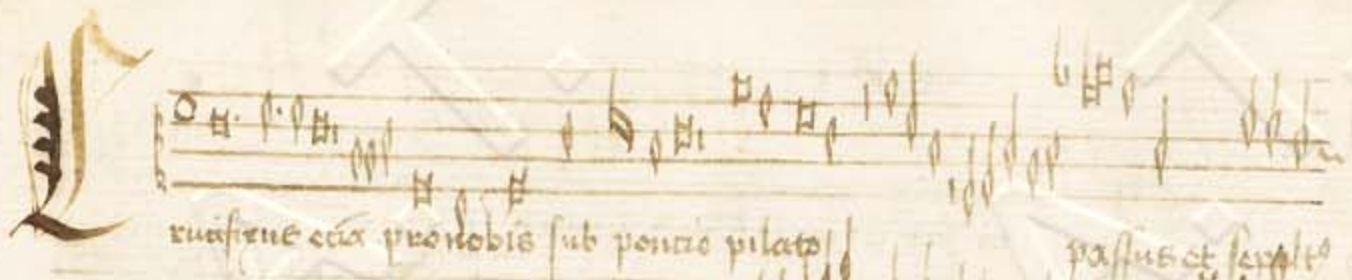 Crucifixus eciā pro nobis sub poncio pilato passus et sepults